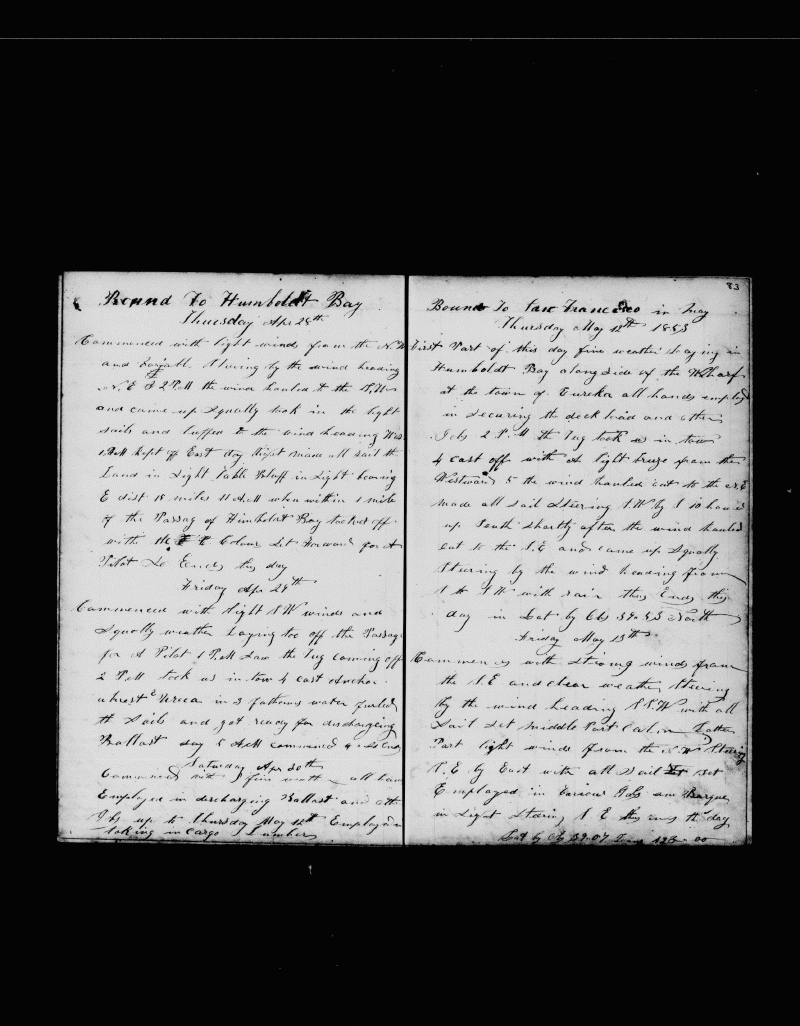 Bound To Humboldt Bay
Thursday Apr 28th
Commenced with light winds from the N.W
and Steering by the wind heading
N. E 2 P.M the wind hauled to the
and came up Squally took in the light
sails and luffed to the wind heading
1 P.M Kept off East day light made all sail the
Land in Sight Table Bluff in Sight bearing
E dist 15 miles 11 A.M when within 1 mile
of the Passag of Humboldt Bay tacked off
with the Colour Set Forward for A
Pilot So Ends this day
Friday Apr 29th
Commenced with light N W winds and
Squally weather Laying too off the Passage
for A Pilot 1 P.M Saw the Tug coming off
2 P.M took us in tow 4 cast Anchor
abrest Ureca in 3 fathoms water furled
the Sails and got ready for discharging
Ballast day 5 A.M commenced So Ends
Saturday Apr 30th
Commenced with fine all hands
Employed in discharging Ballast and oth
Jobs up to Thursday May 12th Employed in
taking in cargo Lumber
83
Bound To San Francisco in May
Thursday May 12th 1883
First Part of this day fine weather Laying in
Humboldt Bay along side of the Wharf
at the town of Eureka all hands employd
in Securing the deck load and other
Jobs 2 P.M the Tug took us in tow
4 cast off with A light breze from the
Westward 5 the wind hauled out to the N.E
made all sail Steering S.W by S 10 hauld
up South Shortly after the wind hauled
out to the S.E and came up Squally
Steering by the wind heading from
with rain this Ends this
day in Lat by Obs North
Friday May 13th
Commences with Strong winds from
the S.E and clear weather Steering
by the wind heading S.S.W with all
Sail Set middle Part Calm Latter
Part light winds from the N.W Steering
S.E by East with all Sail set
Employed in Various Jobs one Barque
in Sight Steering S E this ends the day
Lat by Ob 39.07